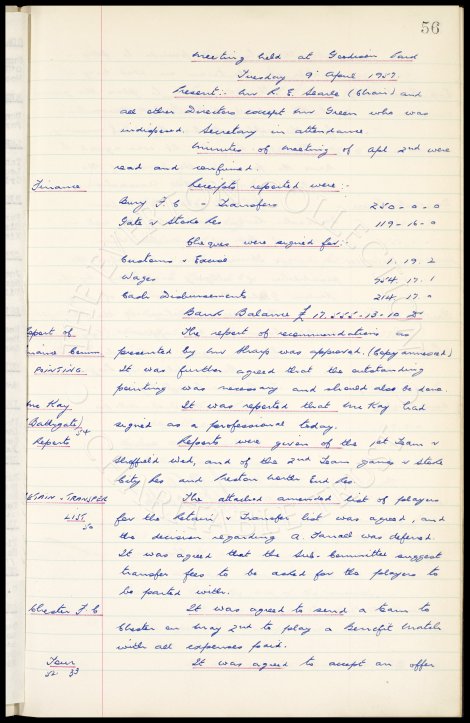 56
Meeting held at Goodison Park
Tuesday 9th April 1957
Present:- Mr R. E. Searle (Chair) and
all other Directors except Mr Green who was
indisposed. Secretary in attendance
Minutes of meeting of Apl 2nd were
read and confirmed.
Finance Receipts reported were:-
Bury F.C. - Transfers 250-0-0
Gate v Stoke Res 119-16-0
Cheques were signed for:-
Customs & Excise 1.19.2
Wages 954.17.1
Cash Disbursements 214.17.0
Bank Balance £17,555-13-10 Dr
Report of The report of recommendations as
Finance Comm presented by Mr Sharp was approved. (Copy annexed)
PAINTING. It was further agreed that the outstanding
painting was necessary and should also be done
It was reported that Mc Kay had
Mc Kay
(Bathgate) 54 signed as a professional today.
Reports Reports were given of the 1st Team v
Sheffield Wed, and of the 2nd Team games v Stoke
City Res and Preston North End Res.
RETAIN & TRANSFER The attached amended list of players
LIST 50 for the Retain & Transfer list was agreed, and
the decision regarding A. Farrall was deferred.
It was agreed that the Sub-Committee suggest
transfer fees to be asked for the players to
be parted with.
Chester F.C. It was agreed to send a team to
Chester on May 2nd to play a Benefit Match
with all expenses paid.
Tour It was agreed to accept an offer
52 53
THE EVERTON COLLECTION